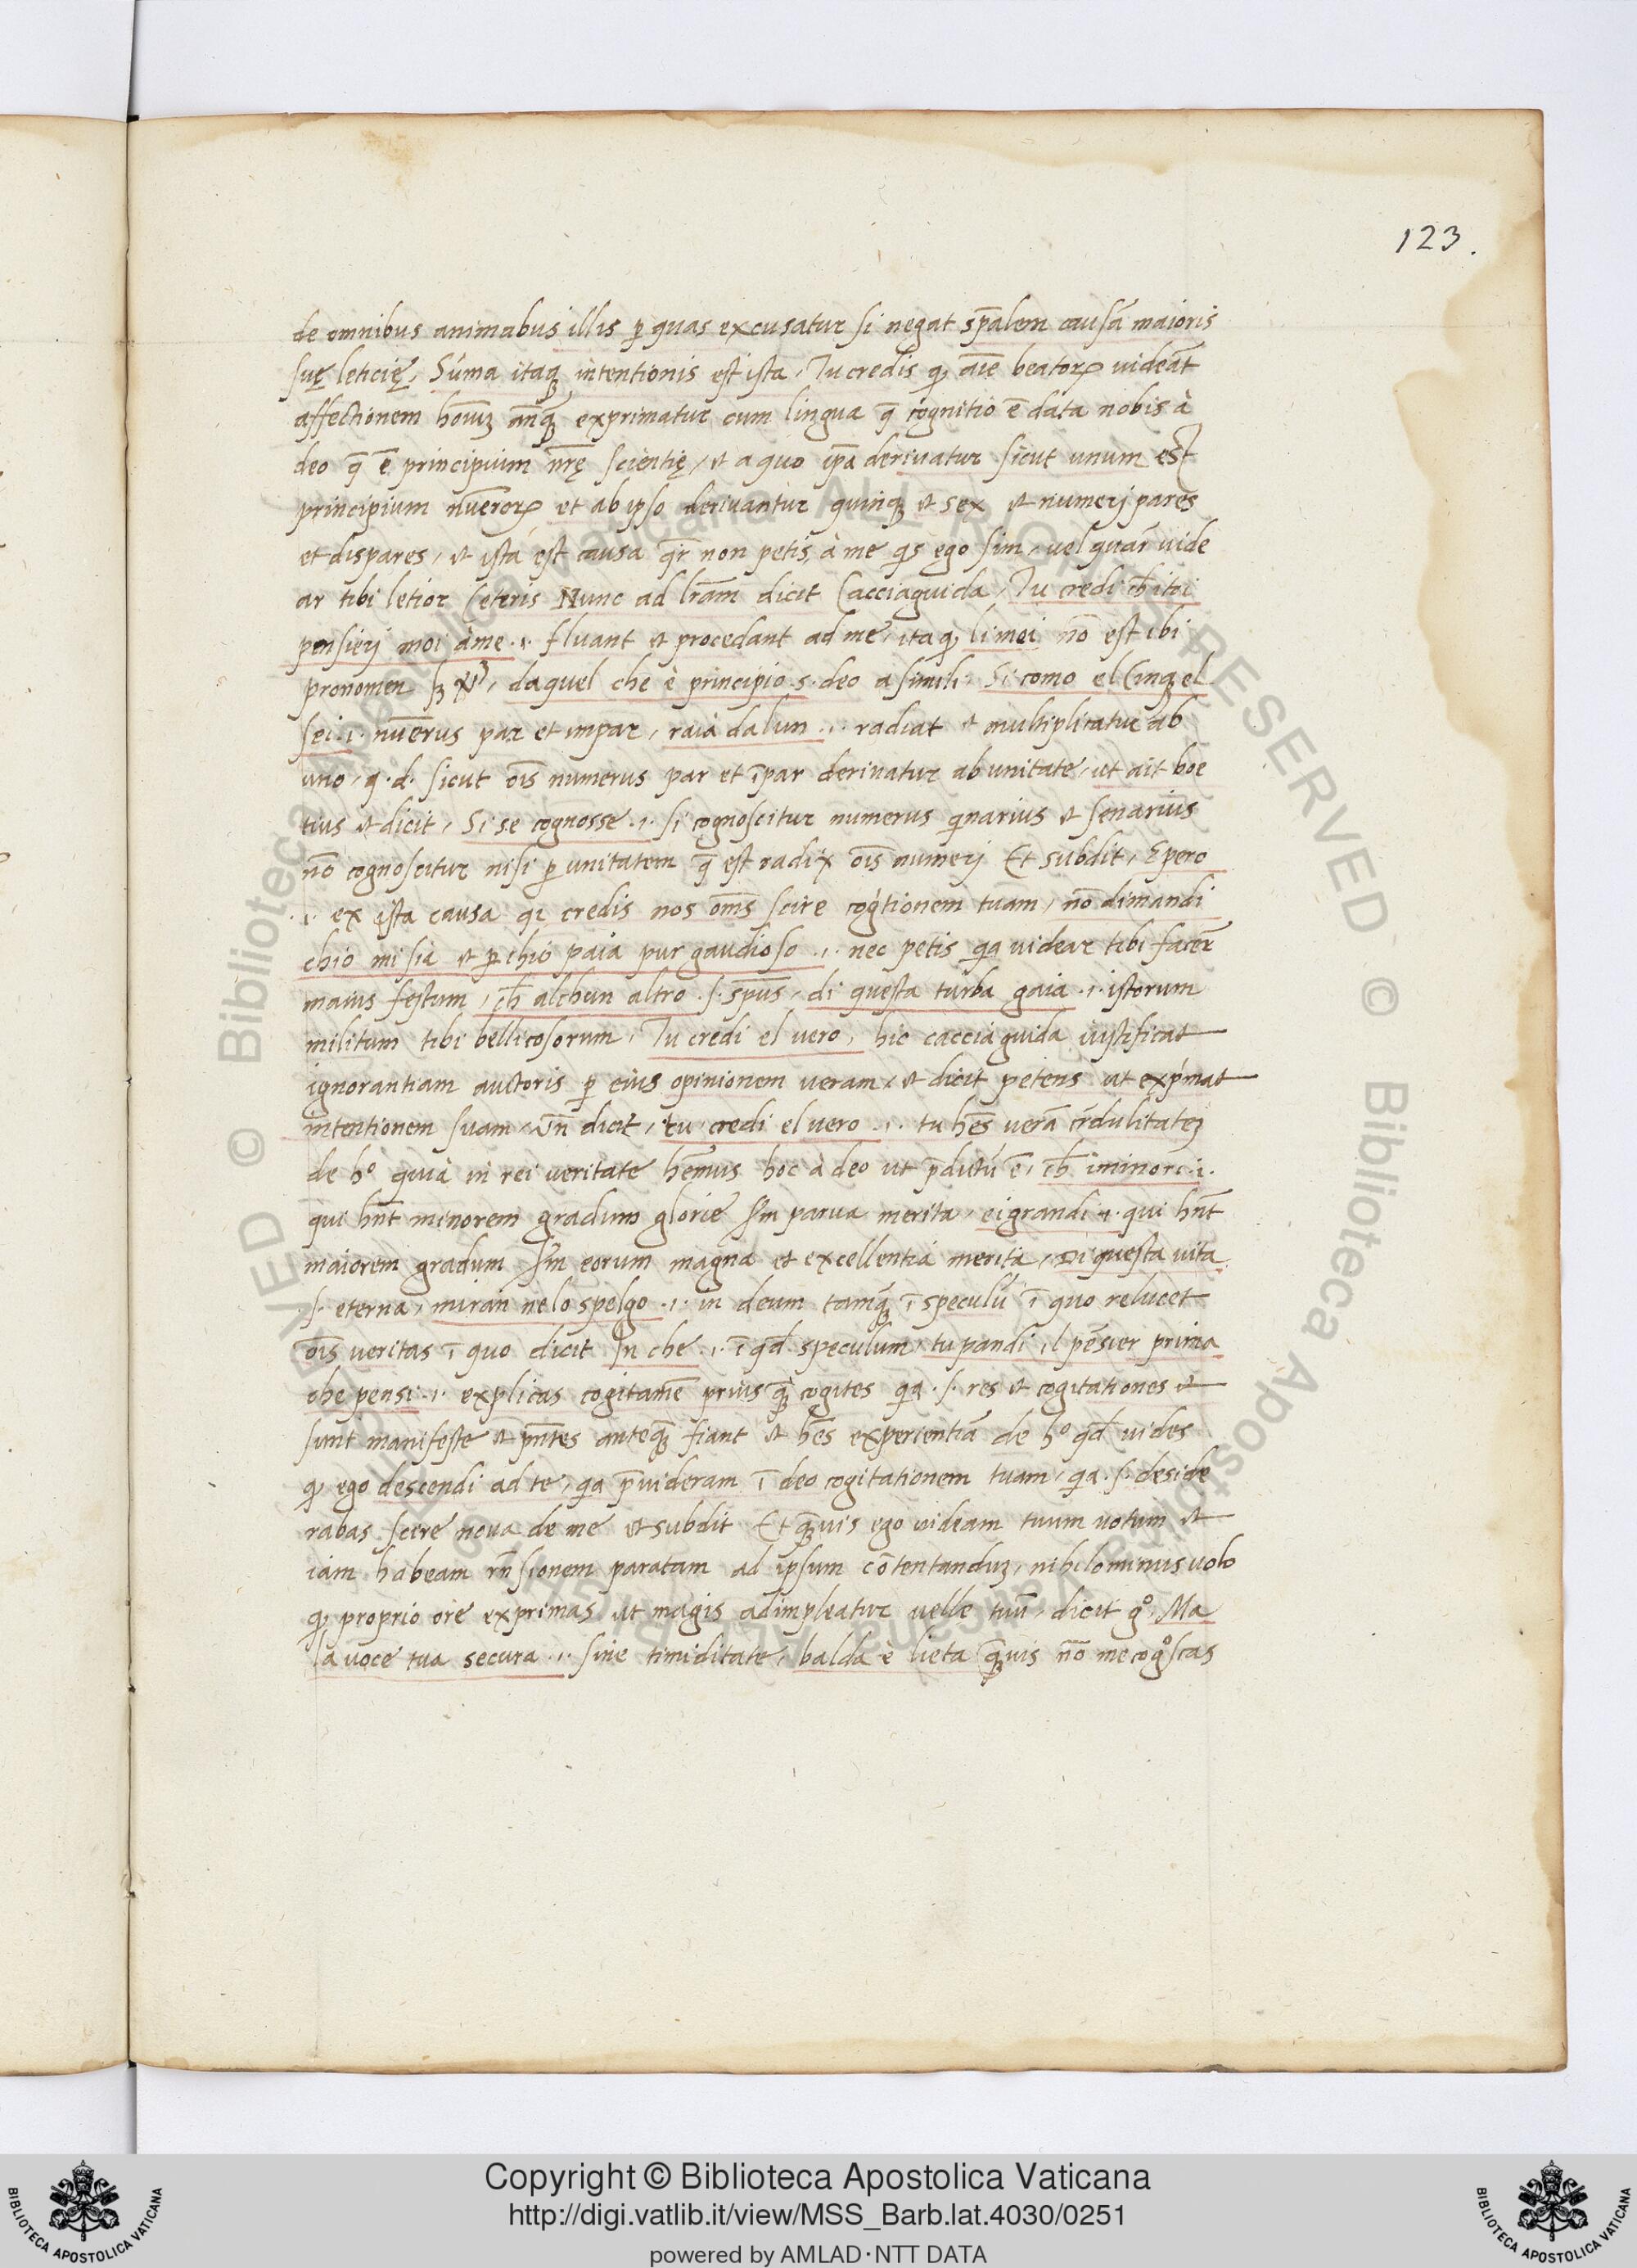 123.
de omnibus animabus illis ꝑ quas excusatur si negat sp̄alem causā maioris
suę leticię, Sūma itaqꝫ intentionis est ista, Tu credis qꝫ aīe beatoꝝ uideāt
affectionem hoīuꝫ anqꝫ exprimatur cum lingua q̄ cognitio ē data nobis à
deo q̄ ē principium nr̄ę scientię, et a quo ip̄a deriuatur sicut unum est
principium nūeroꝝ et ab ipso deriuantur quinqꝫ et sex et numerj pares
et dispares, et ista est causa qr̄ non petis, à me qis ego sim, uel quār uide
ar tibi letior Ceteris Nunc ad lr̄am dicit Cacciaguida, Tu credi ch̄ itoi
pensierj moi àme .i. fluant et procedant ad me, ita qꝫ li moi nō est ibi
pronomen sꝫ, daquel che è principio .s. deo a simili Si como el Cinqꝫ el
sei .i. nūerus par et impar, raia dalun .i. radiat et multiplicatur ab
uno, q.d. sicut oīs numerus par et īpar deriuatur ab unitate, ut ait boe
tius et dicit, Si se cognosse .i. si cognoscitur numerus qinarius et senarius
nō cognoscitur nisi ꝑ unitatem q̄ est radix oīs numerj Et subdit, Epero
.i. ex ista causa qi credis nos oms̄ scire cogitionem tuam, nō dimandi
chio mi sia et ꝑchio paia pur gaudioso .i. nec petis qa uidear tibi facer̄
maius festum, ch̄ alchun altro .s. sp̄us, di questa turba gaia .i. istorum
militum tibi bellicosorum, Tu credi el vero, hic cacciaguida iustificat
ignorantiam auctoris ꝑ eius opinionem ueram, et dicit petens ut exp̍mat
intentionem suam, Un̄ dicit, tu credi el vero .i. tu hēs uerā cr̄dulitateꝫ
de hº quia in rei ueritate hēmus hoc à deo ut p̄dictū ē, ch̄ iminori .i.
qui hn̄t minorem gradum glorie sm̄ parua merita, eigrandi .i. qui hn̄t
maiorem gradum sm̄ eorum magna et excellentia merita, Di questa uita
.s. eterna, miran nelo spelgo .i. in deum tamqꝫ ī speculū ī quo relucet
oīs ueritas ī quo dicit In che .i. ī qd̄ speculum, tu pandi il pēsier prima
che pensi .i. explicas cogitamē prius qꝫ cogites qa .s. res et cogitationes et
sunt manifeste et pn̄tes anteqꝫ fiant et hēs experientiā de hº qd̄ uides
qꝫ ego descendi ad te, qa p̄uideram ī deo cogitationem tuam, qa .s. deside
rabas scire noua de me et subdit Et qꝫuis ego uideam tuum uotum et
iam habeam rn̄sionem paratam ad ipsum cōtentanduꝫ, nihilominus uolo
qꝫ proprio ore exprimas ut magis adimpleatur uelle tuū, dicit gº, Ma
la uoce tua secura .i. sine timiditate, balda è lieta qꝫuis nō me cogºscas
© Biblioteca Apostolica Vaticana ALL RIGHTS RESERVED © Biblioteca Apostolica Vaticana ALL RIGHTS RESERVED
BIBLIOTECA APOSTOLICA VATICANA
Copyright © Biblioteca Apostolica Vaticana
http://digi.vatlib.it/view/MSS_Barb.lat.4030/0251
powered by AMLAD·NTT DATA
BIBLIOTECA APOSTOLICA VATICANA